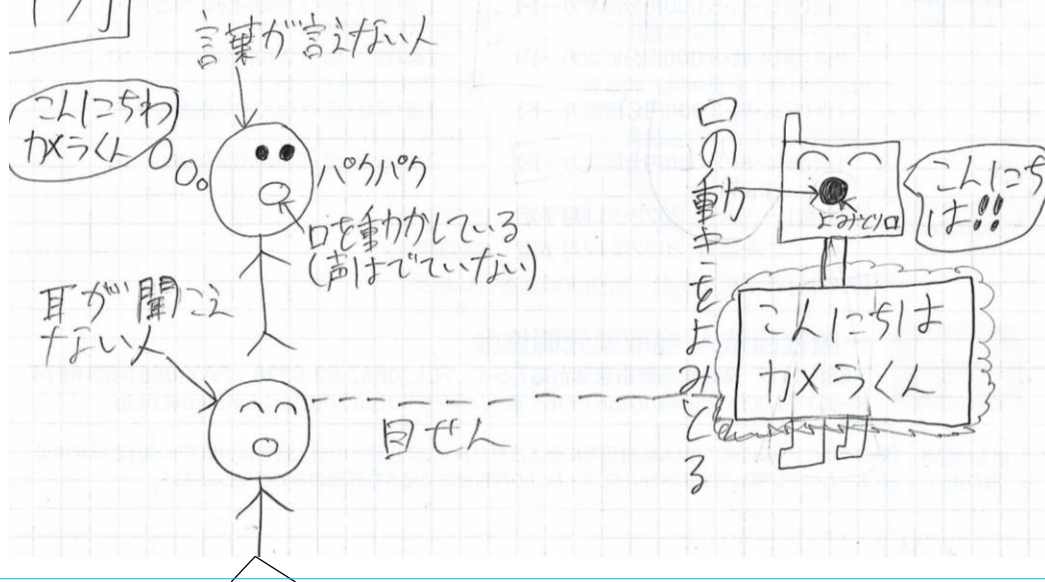 言葉が言えない人
こんにちわ
カメラくん
パクパク
口を動かしている
(声はでていない)
耳が聞こえ
ない人
目せん
口の動きをよみとる
よみとり口
こんにち
は!!
こんにちは
カメラくん